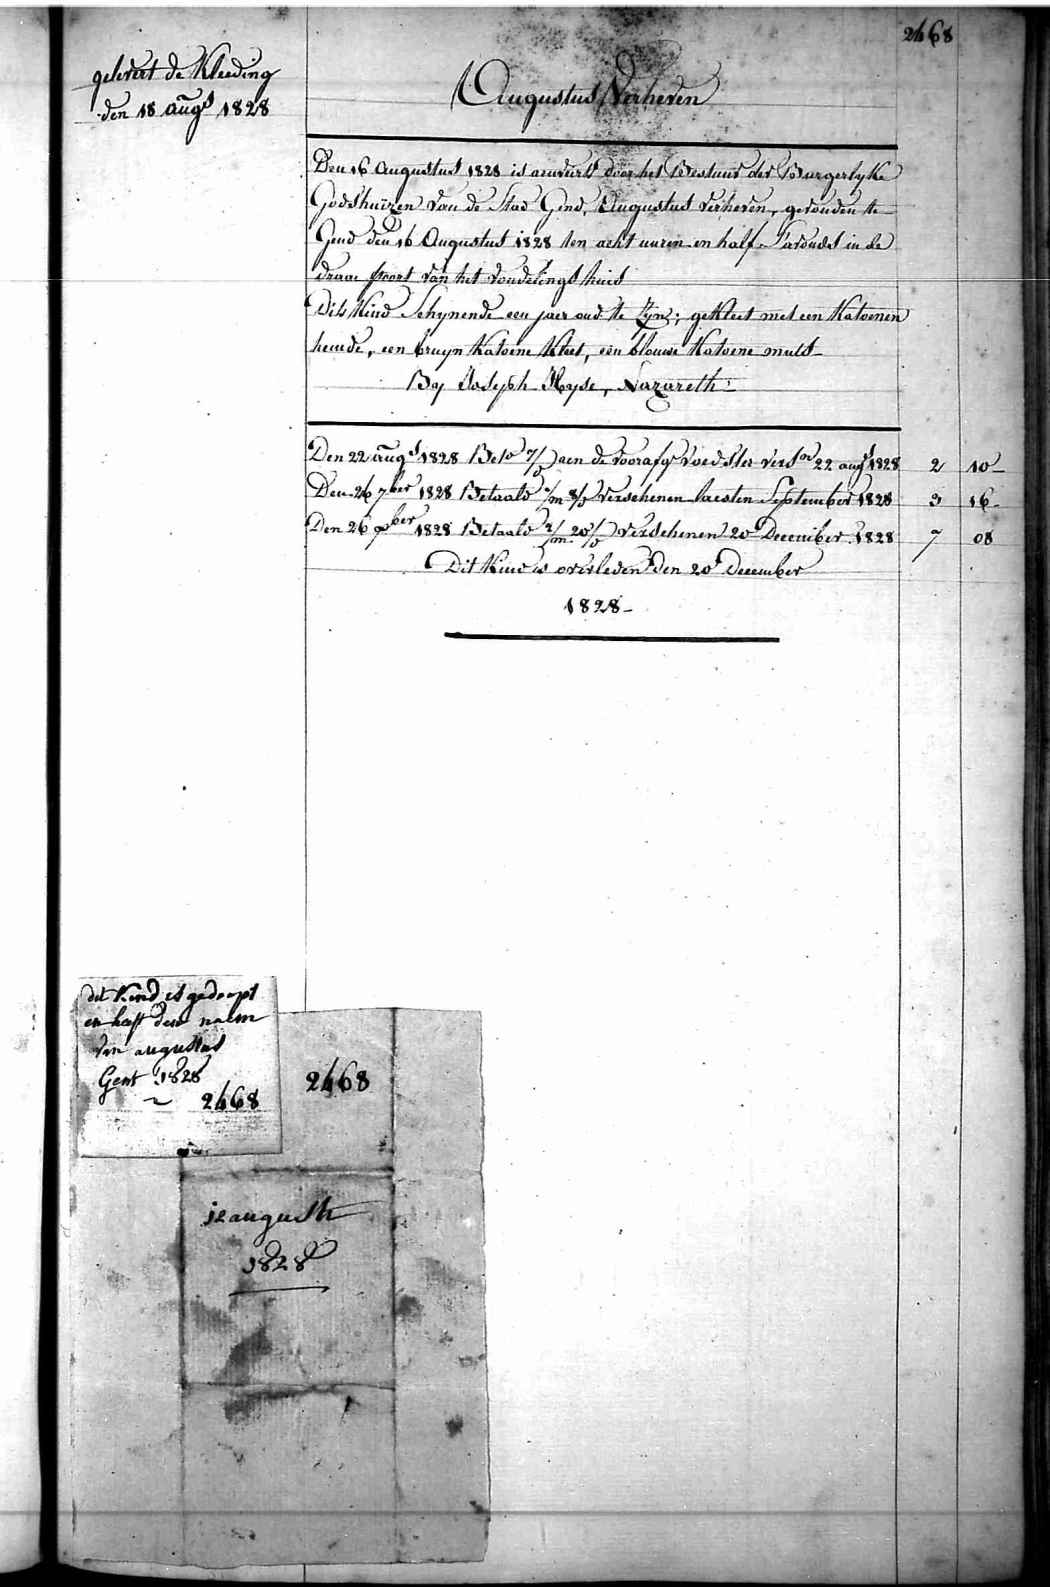 2468
gelevert de Kleeding
den 18 augs 1828
Augustus Verheven
Den 16 Augustus 1828 is aenveird door het Bestuur der Burgerlyke
Godshuizen van de Stad Gend, Augustus Verheven, gevonden te
Gend den 16 Augustus 1828 ten acht uuren en half S'avonds in de
draai poort van het vondelings huis
Dit Kind Schynende een jaer oud te Zyn; gekleet met een Katoenen
hemde, een bruyn Katoene Kleet, een blauwe Katoene muts
By Joseph Hyse, Nazareth
Den 22 augs 1828 Bet° 7/D aen de voorafge Voedster Verson 22 augs 1828 2 10
Den 26 7ber 1828 Betaald 1/m 8/D Verschenen laesten September 1828 3 16
Den 26 ber 1828 Betaald 2/m 20/D Verschenen 20 December 1828 7 08
Dit Kind is overleden den 20 December
1828
dit Kind is gedoopt
en heeft den naem
van augustus
Gent 1828
2468
2468
12 augusti
1828